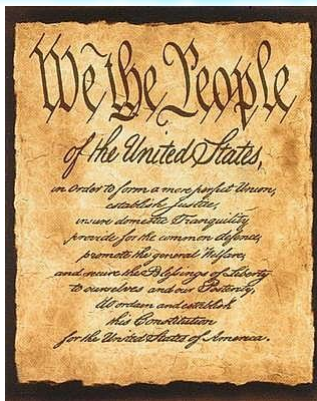 We the People
of the United States,
in Order to form a more perfect Union,
establish Justice,
insure domestic Tranquility,
provide for the common defence,
promote the general Welfare,
and secure the Blessings of Liberty
to ourselves and our Posterity,
do ordain and establish
this Constitution
for the United States of America.